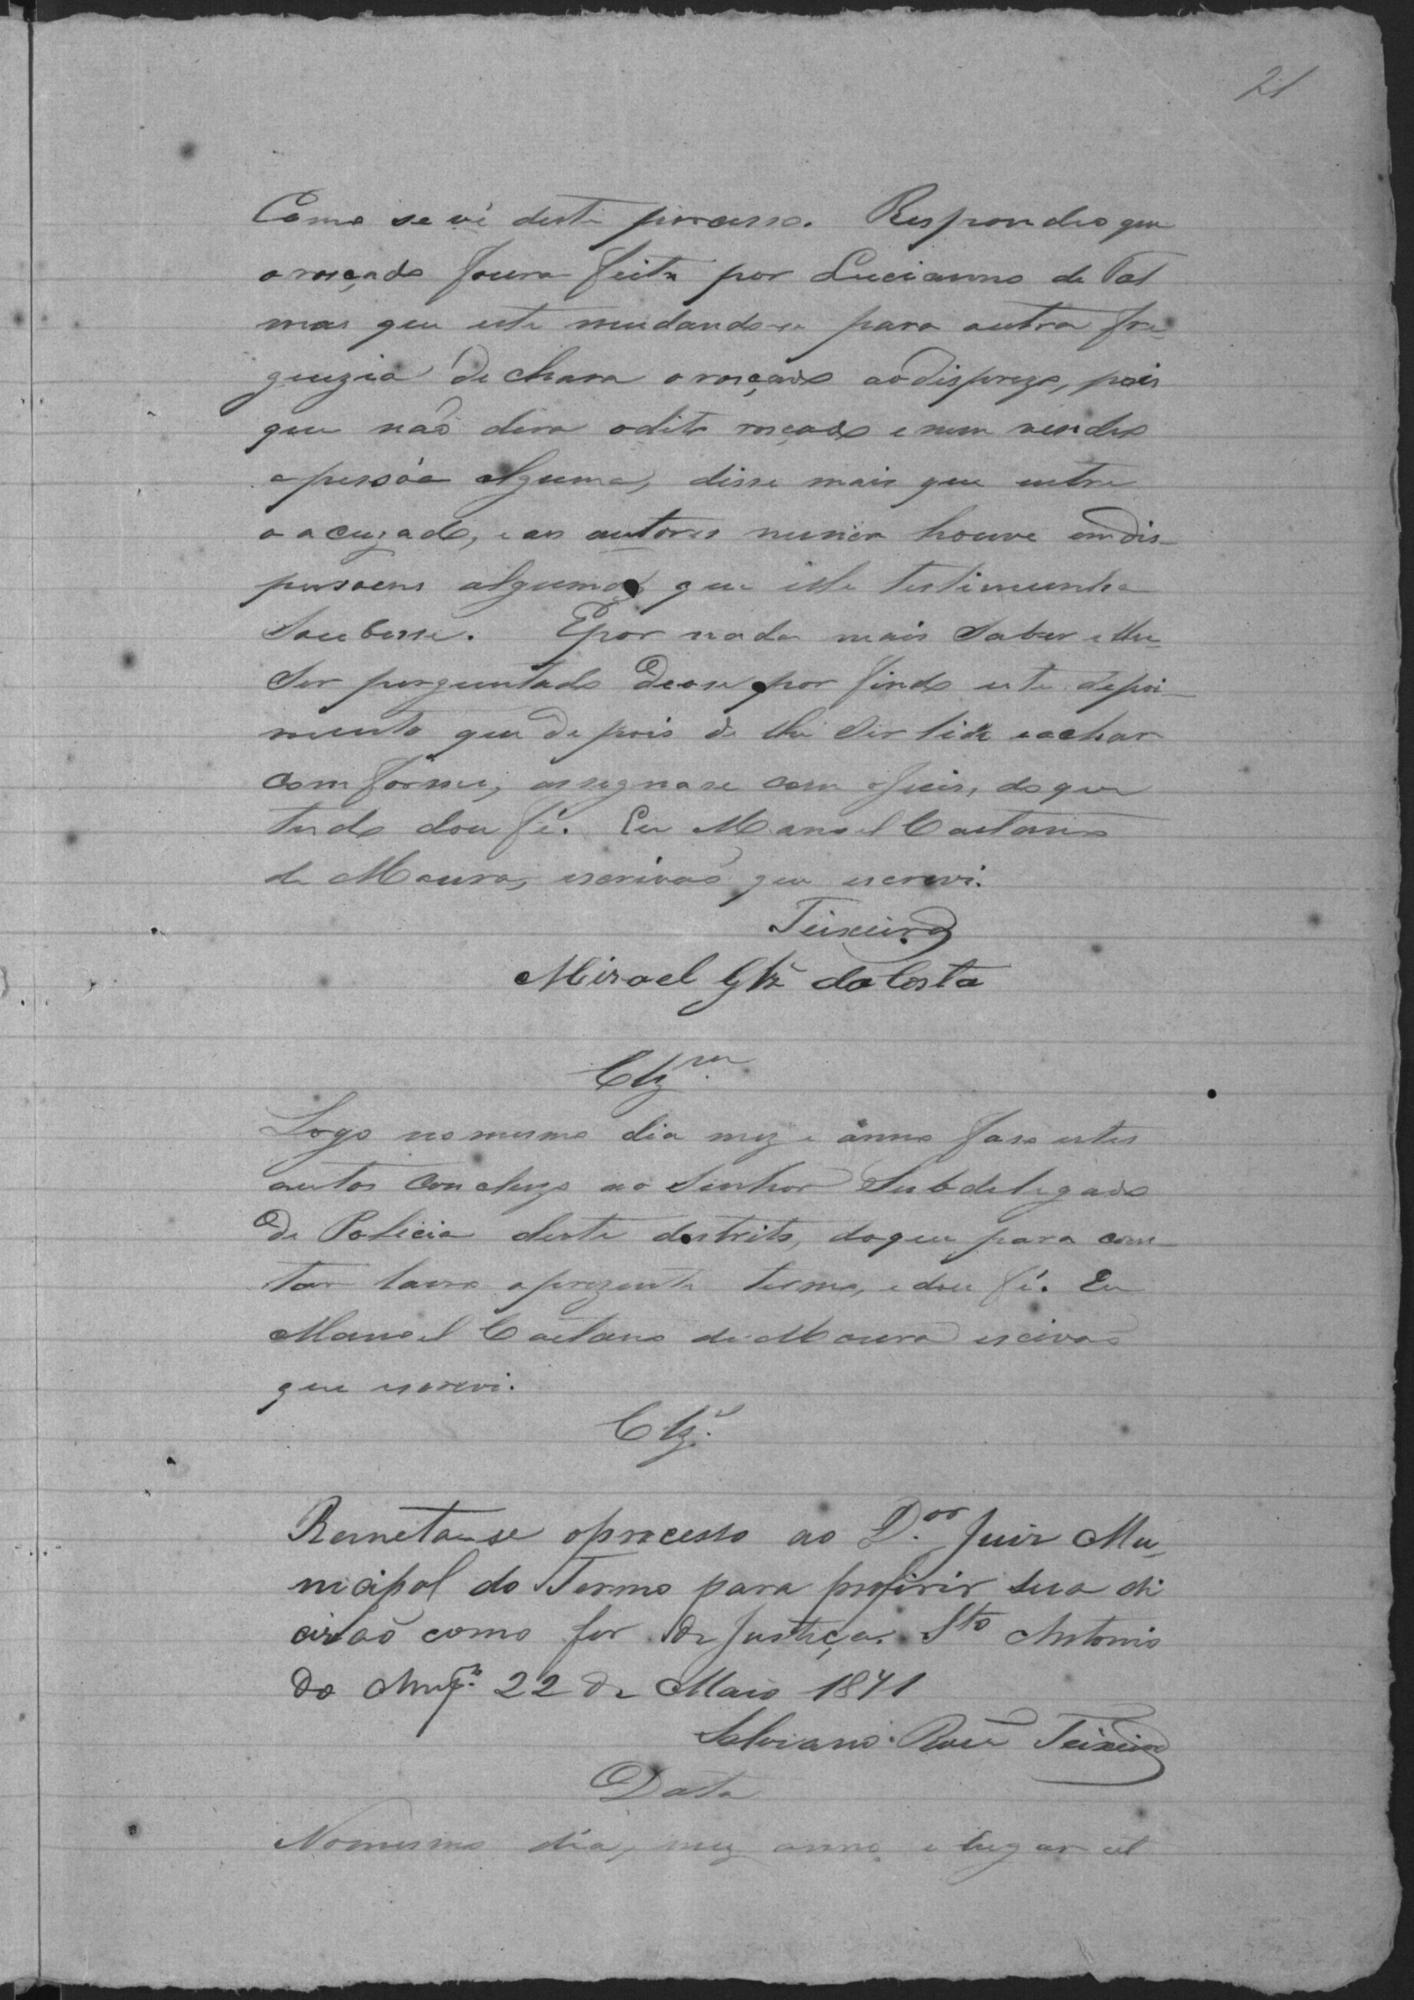 21
Como se vê deste processo. Respondeo que
o roçado foura feito por Lucianno de Tal
mas que este mudando-se para outra fre-
guezia deichara o roçado ao disprezo, pois
que não dera o dito roçado e nem vendeo
a pessôa alguma, disse mais que entre
o acuzado, e os autores nunca houve endis-
pusoens algumas que elle testimunha
soubesse. E por nada mais saber e lhe
ser perguntado deose por findo este depoi-
mento que depois de lhe ser lido e achar
comfórme, assegnase com o juis, do que
tudo dou fé. Eu Manoel Caetano
de Moura, escrivaõ que escrevi.
Teixeira
Misael Glz da Costa
Clzm
Logo no mesmo dia mez e anno faso estes
autos concluzo ao Senhor Subdelegado
de Policia deste destrito, do que para com-
tar lavro o prezente termo, e dou fé. Eu
Manoel Caetano de Moura escivaõ
que escrevi.
Clz.
Remeta-se o processo ao D.or Juiz Mu-
nicipal do Termo para proferir sua di
cisaõ como for de Justiça. Sto Antonio
do 22 de Maio 1871
Salviano Teixeira
Data
No mesmo dia, mez anno e lugar